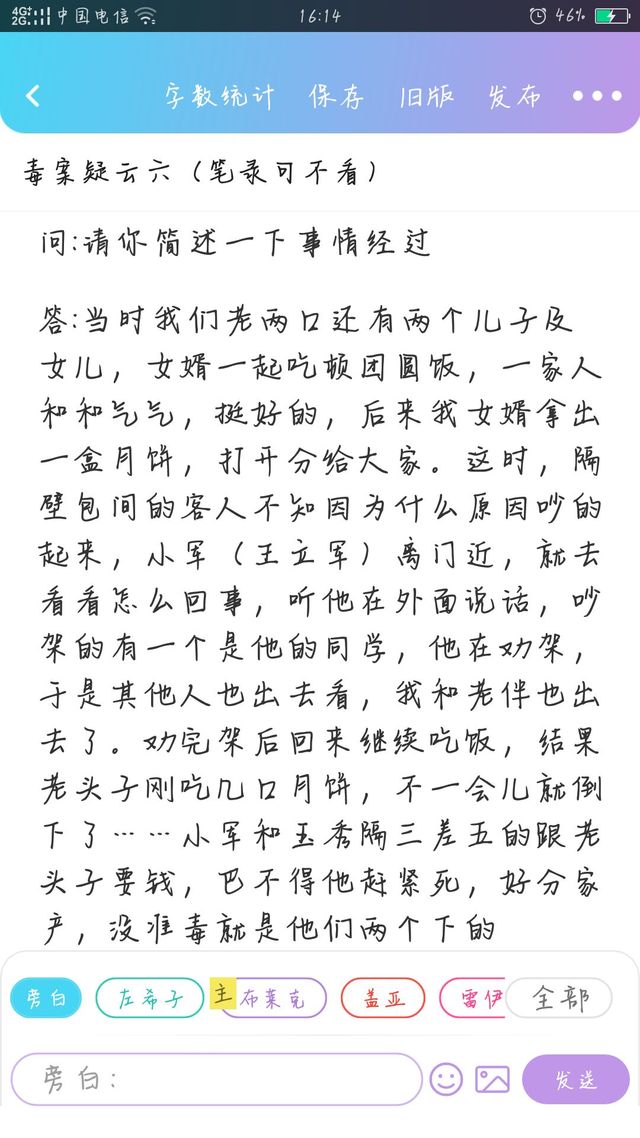 4G+
2G
中国电信
16:14
46%
字数统计 保存 旧版 发布
毒案疑云六（笔录可不看）
问:请你简述一下事情经过
答:当时我们老两口还有两个儿子及
女儿，女婿一起吃顿团圆饭，一家人
和和气气，挺好的，后来我女婿拿出
一盒月饼，打开分给大家。这时，隔
壁包间的客人不知因为什么原因吵的
起来，小军（王立军）离门近，就去
看看怎么回事，听他在外面说话，吵
架的有一个是他的同学，他在劝架，
于是其他人也出去看，我和老伴也出
去了。劝完架后回来继续吃饭，结果
老头子刚吃几口月饼，不一会儿就倒
下了……小军和玉秀隔三差五的跟老
头子要钱，巴不得他赶紧死，好分家
产，没准毒就是他们两个下的
旁白 左希子 主 布莱克 盖亚 雷伊 全部
旁白： 发送